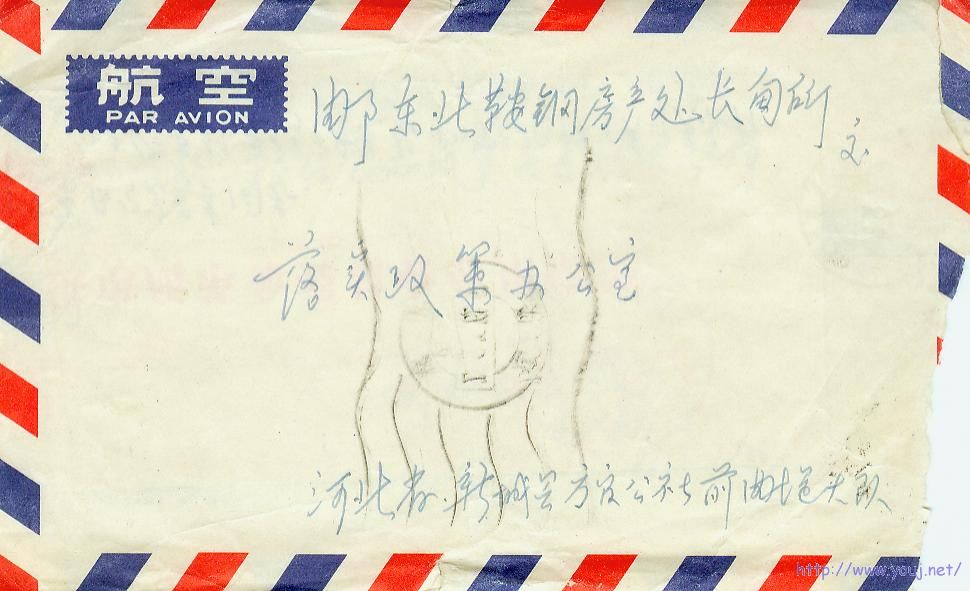 航空
PAR AVION
邮东北鞍钢房产处长甸所
交
落实政策办公室
河北省新城县方官公社前曲堤大队
http://www.youj.net/